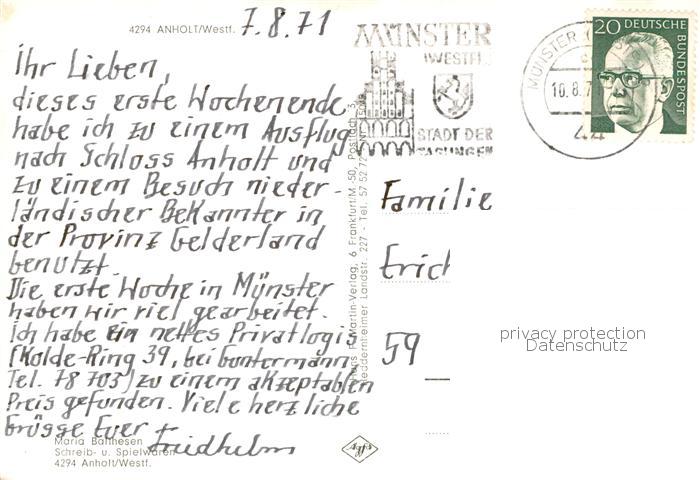 4294 ANHOLT/Westf. 7.8.71
Ihr Lieben,
dieses erste Wochenende
habe ich zu einem Ausflug
nach Schloss Anholt und
zu einem Besuch nieder-
ländischer Bekannter in
der Provinz Gelderland
benutzt.
Die erste Woche in Münster
haben wir viel gearbeitet.
Ich habe ein nettes Privatlogis
(Kolde-Ring 39, bei Guntermann,
Tel. 78 703) zu einem akzeptablen
Preis gefunden. Viele herzliche
Grüsse Euer
Friedhelm
Maria Balthesen
Schreib- u. Spielwaren
4294 Anholt/Westf.
Agfa
MÜNSTER
(WESTF.)
STADT DER
TAGUNGEN
MÜNSTER
10.8.7
44
20 DEUTSCHE
BUNDESPOST
Familie
Erich
59
privacy protection
Datenschutz